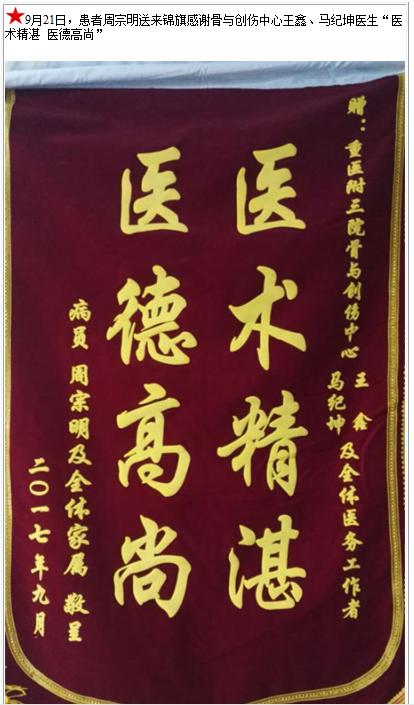 ★9月21日，患者周宗明送来锦旗感谢骨与创伤中心王鑫、马纪坤医生“医
术精湛 医德高尚”
赠：重医附三院骨与创伤中心 王鑫 马纪坤 及全体医务工作者
医术精湛
医德高尚
病员 周宗明及全体家属 敬呈
二〇一七年九月